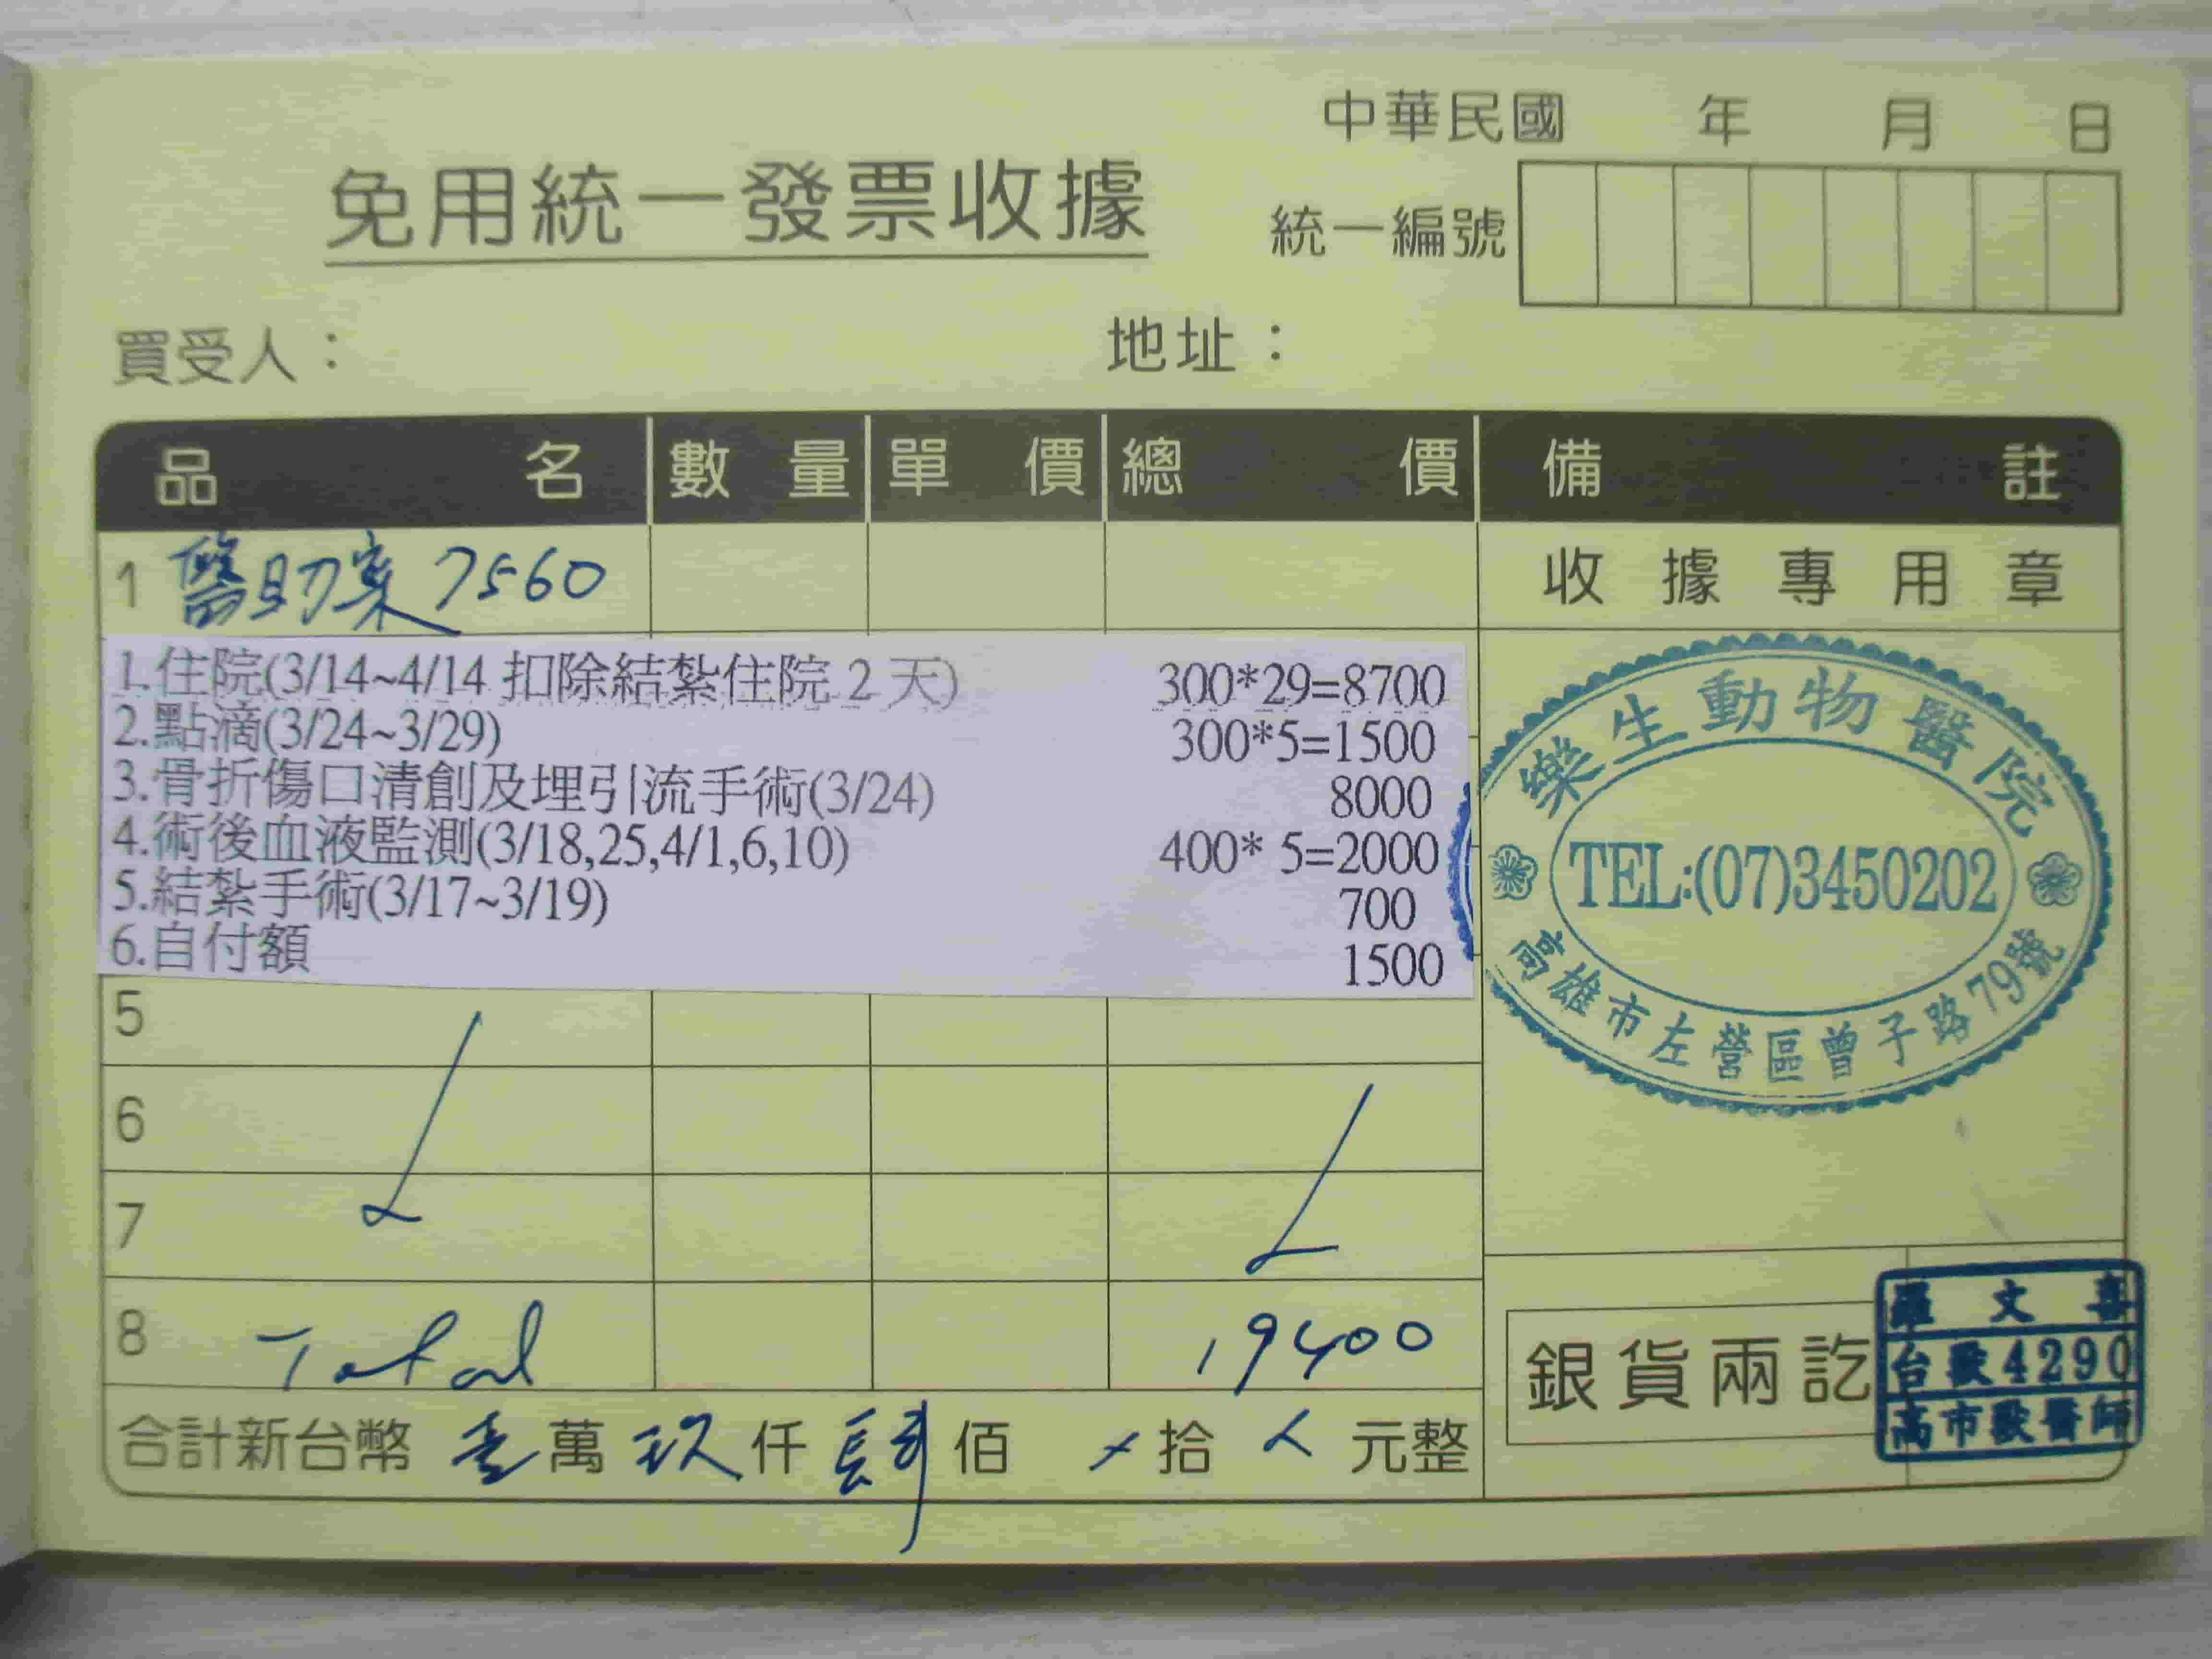 中華民國 年 月 日
免用統一發票收據
統一編號
買受人： 地址：
品名 數量 單價 總價 備註
1 醫助案 7560
收據專用章
1.住院(3/14~4/14 扣除結紮住院 2 天) 300*29=8700
2.點滴(3/24~3/29) 300*5=1500
3.骨折傷口清創及埋引流手術(3/24) 8000
4.術後血液監測(3/18,25,4/1,6,10) 400* 5=2000
5.結紮手術(3/17~3/19) 700
6.自付額 1500
樂生動物醫院
TEL:(07)3450202
高雄市左營區曾子路79號
5
6
7
8 Total 19400
合計新台幣 壹萬玖仟肆佰 拾 元整
銀貨兩訖
羅文喜
台獸4290
高市獸醫師